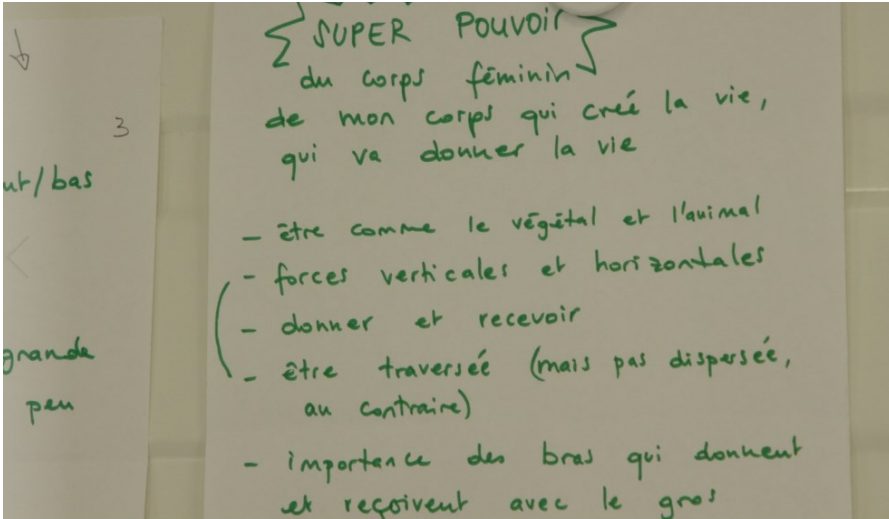 3
ut/bas
grande
peu
SUPER POUVOIR
du corps féminin
de mon corps qui creé la vie,
qui va donner la vie
- être comme le végétal et l'animal
- forces verticales et horizontales
- donner et recevoir
- être traverseé (mais pas disperseé,
au contraire)
- importance des bras qui donnent
et reçoivent avec le gros